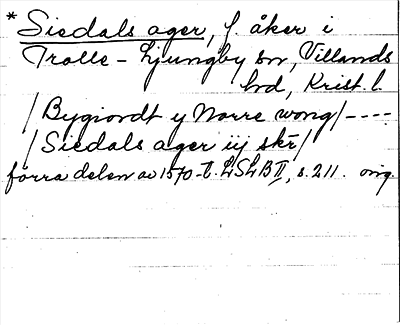 * Siedals ager, f. åker i
Trolle-Ljungby sn, Villands
hd, Krist. l.
/Bygiordt y Norre wong/----
/Siedals ager iij skr/
förra delen av 1570-t. LSLB II, s. 211. orig.